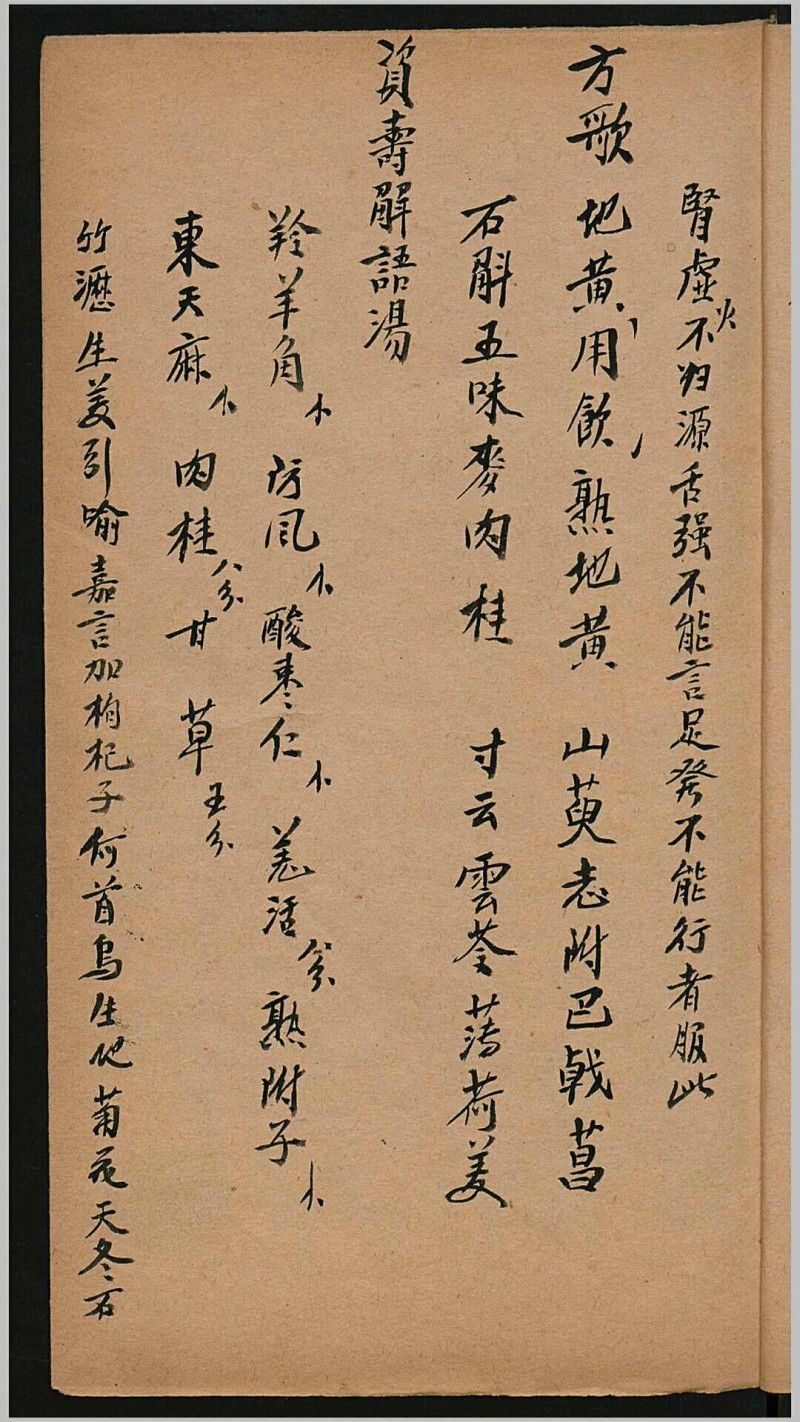 腎虛火不归源舌强不能言足發不能行者服此
方歌 地黃用飲熟地黃 山萸志附巴戟菖
石斛五味麥肉桂 寸云雲苓薄荷姜
資壽解語湯
羚羊角 防风 酸枣仁 羌活 熟附子
東天麻 肉桂八分 甘草五分
竹瀝生姜引喻嘉言加枸杞子何首烏生地菊花天冬石